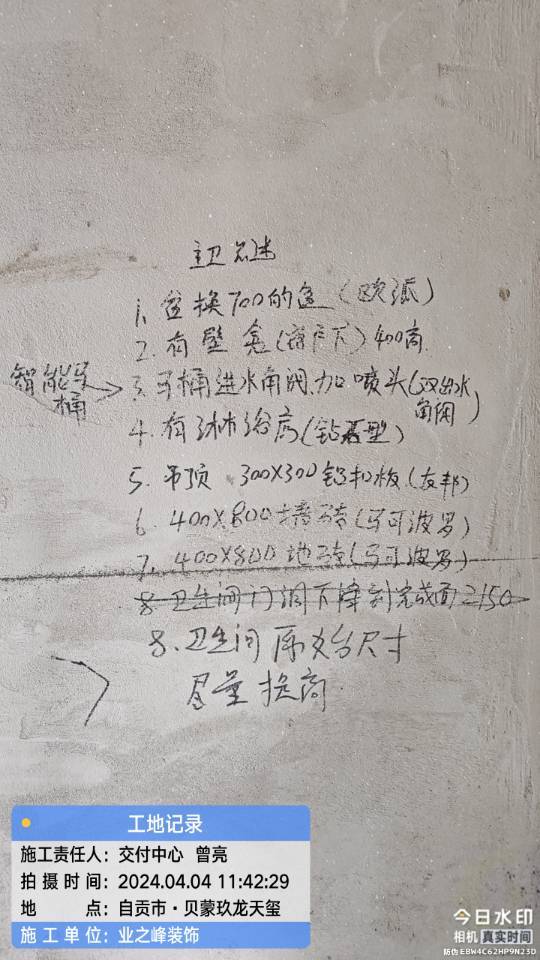 主卫
1. 盆换700的盆(欧派)
2. 有壁龛(窗户下)400高
智能马桶
3. 马桶进水角阀,加喷头(双出水角阀)
4. 有沐浴房(钻石型)
5. 吊顶 300X300铝扣板(友邦)
6. 400X800墙砖(马可波罗)
7. 400X800地砖(马可波罗)
8 卫生间门洞下降到完成面2150
8. 卫生间原始尺寸
尽量提高
工地记录
施工责任人: 交付中心 曾亮
拍摄时间: 2024.04.04 11:42:29
地点: 自贡市·贝蒙玖龙天玺
施工单位: 业之峰装饰
今日水印
相机 真实时间
防伪 EBW4C62HP9N23D